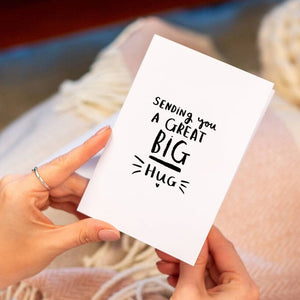 SENDING YOU
A GREAT
BIG
HUG